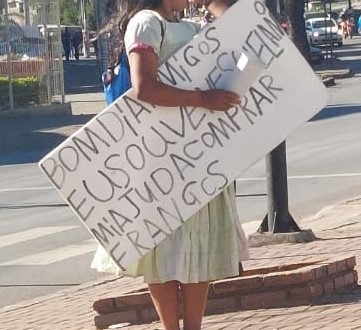 BOM DIA AMIGOS
EU SOU VENESUELINO
MIAJUDA COMPRAR
FRANGOS